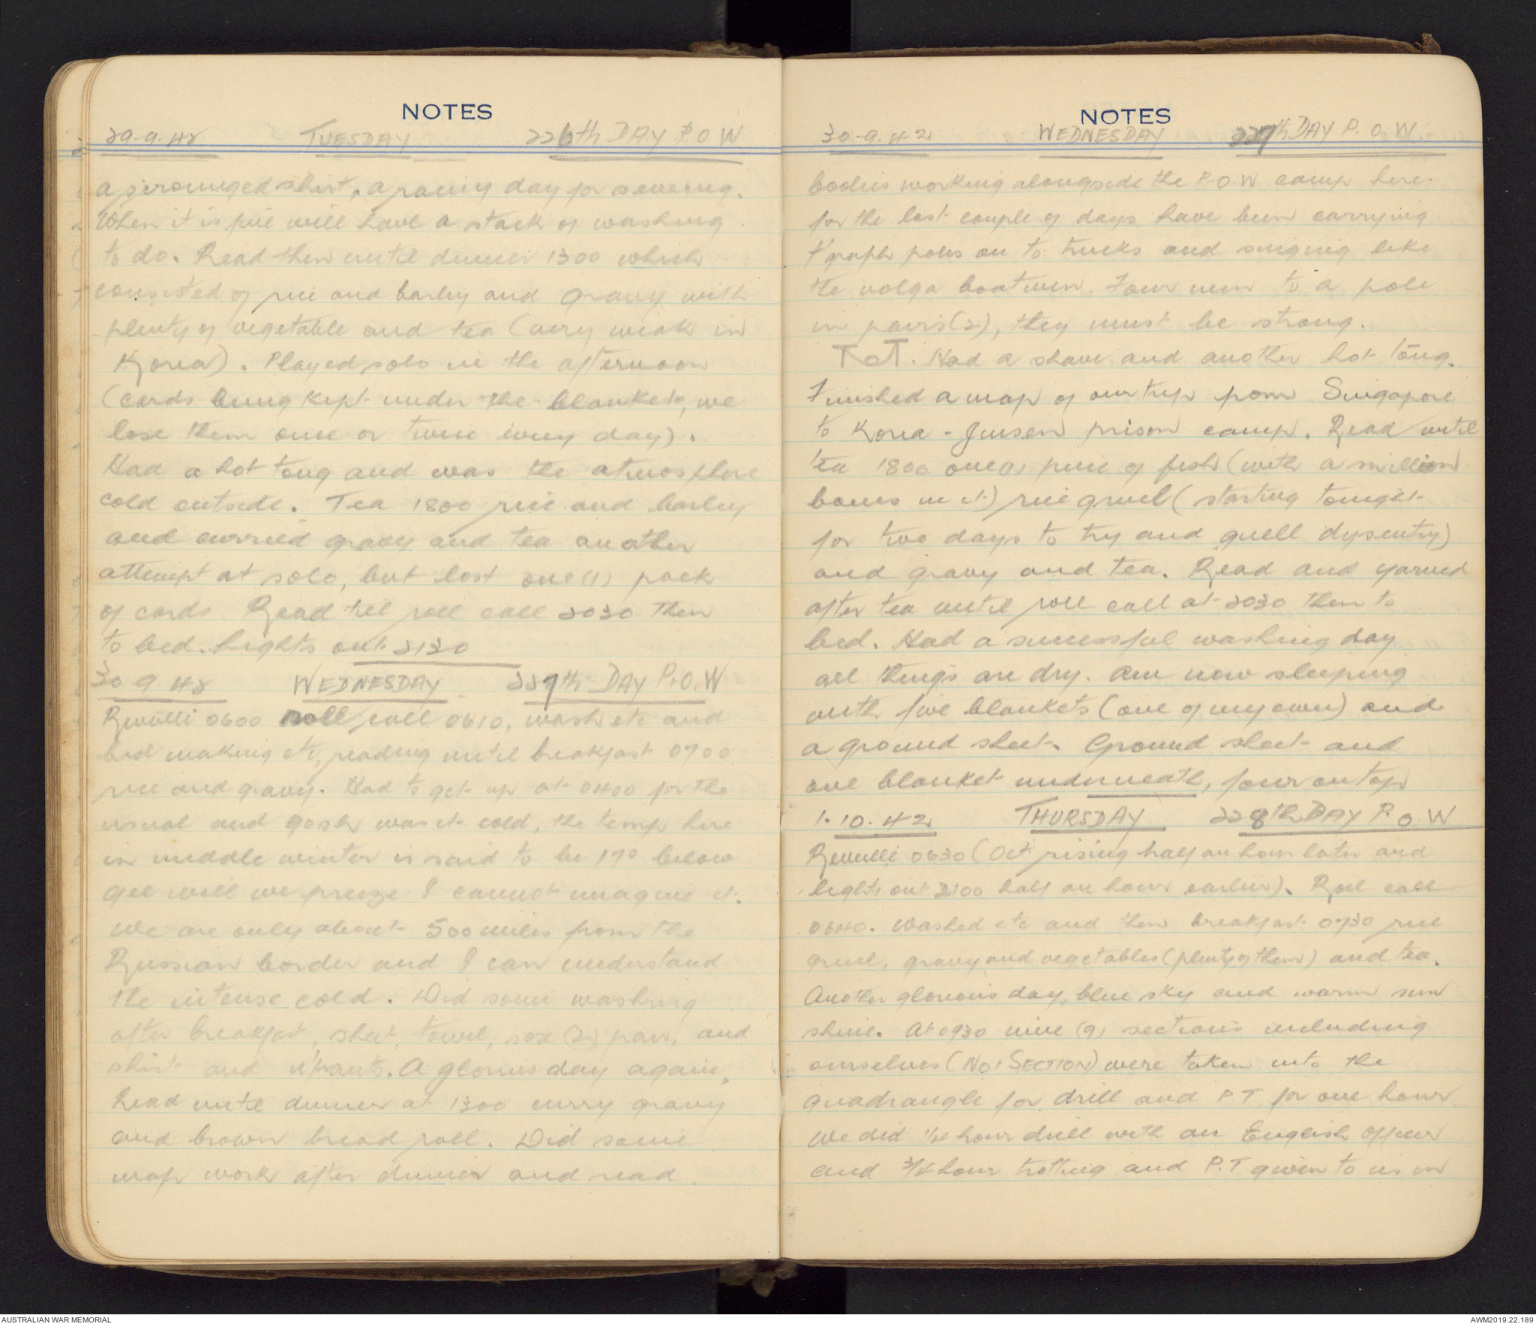 NOTES
29.9.42 TUESDAY 226th DAY P.O.W
a scrounged shirt, a rainy day for sewing.
When it is fine will have a stack of washing
to do. Read then until dinner 1300 which
consisted of rice and barley and gravy with
plenty of vegetable and tea (very weak in
Korea). Played solo in the afternoon
(cards being kept under the blankets, we
lose them once or twice every day).
Had a hot tong and was the atmosphere
cold outside. Tea 1800 rice and barley
and curried gravy and tea another
attempt at solo, but lost one (1) pack
of cards. Read till roll call 2030 then
to bed. Lights out 2130
30.9.42 WEDNESDAY 227th DAY P.O.W
Reveilli 0600 roll call 0610, wash etc and
bed making etc, reading until breakfast 0700
rice and gravy. Had to get up at 0400 for the
usual and gosh was it cold, the temp here
in middle winter is said to be 17° below
gee will we freeze I cannot imagine it.
We are only about 500 miles from the
Russian border and I can understand
the intense cold. Did some washing
after breakfast, sheet, towel, sox (2) pair, and
shirt and u'pants. A glorius day again.
Read until dinner at 1300 curry gravy
and brown bread roll. Did some
map work after dinner and read.
NOTES
30.9.42 WEDNESDAY 227th DAY P.O.W.
bodies working alongside the P.O.W camp here
for the last couple of days have been carrying
t'graph poles on to trucks and singing like
the volga boatmen. Four men to a pole
in pairs (2), they must be strong.
T of T. Had a shave and another hot tong.
Finished a map of our trip from Singapore
to Korea - Jinsen prison camp. Read until
tea 1800 one (1) piece of fish (with a million
bones in it) rice gruel (starting tonight
for two days to try and quell dysentry)
and gravy and tea. Read and yarned
after tea until roll call at 2030 then to
bed. Had a successful washing day
all things are dry. Am now sleeping
with five blankets (one of my own) and
a ground sheet. Ground sheet and
one blanket underneath, four on top
1.10.42 THURSDAY 228th DAY P.O.W
Reveilli 0630 (Oct rising half an hour later and
lights out 2100 half an hour earlier). Roll call
0640. Washed etc and then breakfast 0730 rice
gruel, gravy and vegetables (plenty of them) and tea.
Another glorious day, blue sky and warm sun
shine. At 0930 nine (9) sections including
ourselves (No 1 SECTION) were taken into the
quadrangle for drill and P T for one hour
We did 1/4 hour drill with an English officer
and 3/4 hour trotting and P.T given to us in
AUSTRALIAN WAR MEMORIAL
AWM2019.22.189